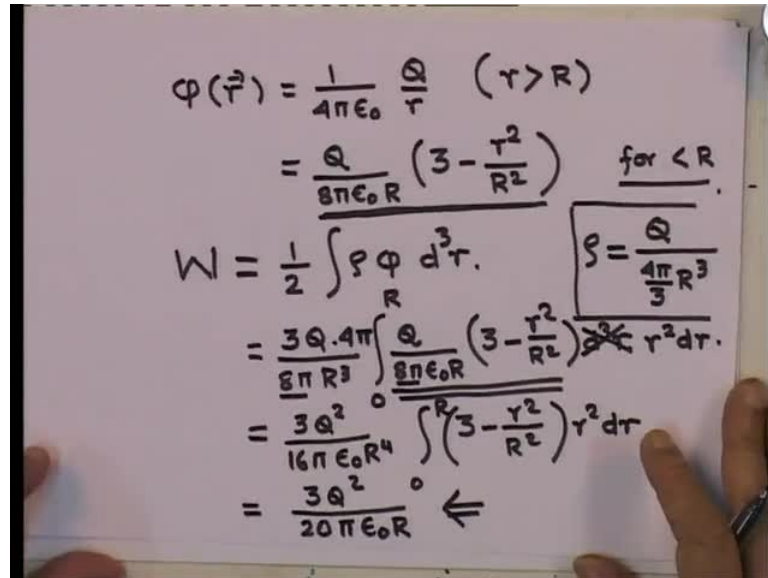 φ(r⃗) = 1/4πε₀ Q/r (r > R)
= Q/8πε₀R (3 − r²/R²) for < R.
W = 1/2 ∫ ρ φ d³r. ρ = Q/(4π/3 R³)
= 3Q.4π/8πR³ ∫₀ᴿ Q/8πε₀R (3 − r²/R²) r²dr.
= 3Q²/16πε₀R⁴ ∫₀ᴿ (3 − r²/R²) r²dr
= 3Q²/20πε₀R ⇐